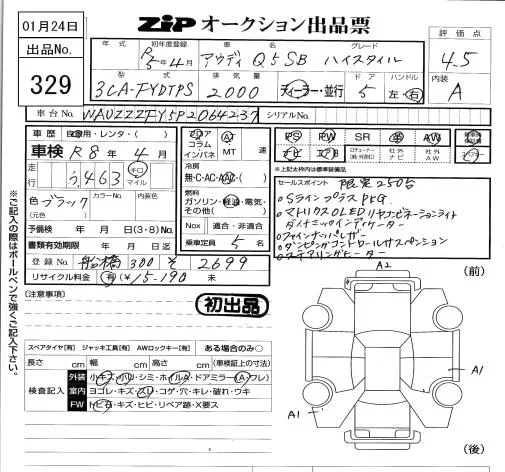 01月24日
出品No.
329
ZIP オークション出品票
評価点
4.5
内装
A
年式 初年度登録 車名 グレード
R5年4月 アウディ Q5SB ハイスタイル
型式 排気量 ドア ハンドル
3CA-FYDTPS 2000 ディーラー・並行 5 左・右
車台No. WAUZZZFY5P2064237 シリアルNo.
車歴 自家用・レンタ・( )
車検 R8年4月
走行 5,463 キロ マイル
色 ブラック (元色) カラーNo. 内装色
予備検 年 月 日(3・8)No.
書類有効期限 年 月 日迄
登録No. 船橋 300 そ 2699
リサイクル料金 (有)(¥15,190 未
フロア コラム インパネ AT MT 速
冷房
無・C・AC・AAC・( )
燃料
ガソリン・軽油・電気・その他( )
Nox 適合・非適合
乗車定員 5名
PS PW SR 革 AW
ナビ エアB 社外ナビ 社外AW
※上記太枠内は標準装備品
セールスポイント 限定250台
○Sラインプラス PKG
○マトリクスOLEDリヤコンビネーションライト
ダイナミックインディケーター
○ファインナッパレザー
○ダンピングコントロールサスペンション
○ステアリングヒーター
[注意事項]
初出品
スペアタイヤ[有] ジャッキ工具[有] AWロックキー[有] ある場合のみ○
長さ cm 幅 cm 高さ cm (車検証上の寸法)
検査記入
外装 小キズ・小U・シミ・ホイルA・ドアミラー(A・ワレ)
室内 ヨゴレ・キズ・スレ・コゲ・穴・キレ・破れ・ウキ
FW トビ石・キズ・ヒビ・リペア跡・X要ス
A2
(前)
A1
A1
(後)
※ご記入の際はボールペンで強くご記入下さい。